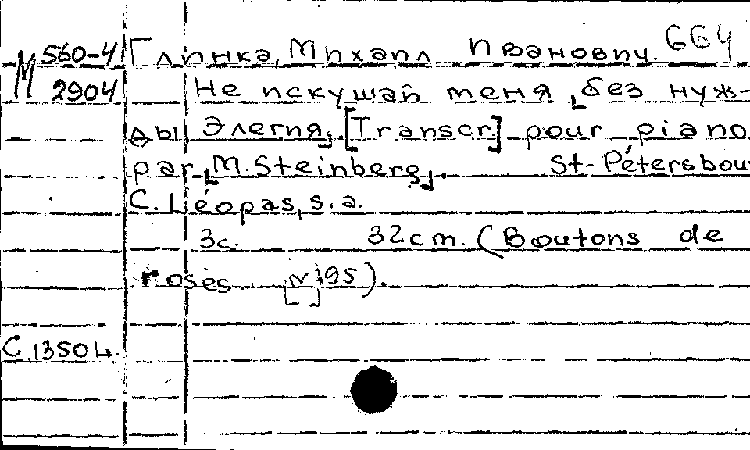 М 560-4 Глинка, Михаил Иванович. 664
2904 Не искушай меня без нуж-
ды Элегия. [Transcr] pour piano
par M. Steinberg. St-Pétersbou
C. Léopas, s.a.
3с. 32cm. (Boutons de
roses N 195).
C.13504.